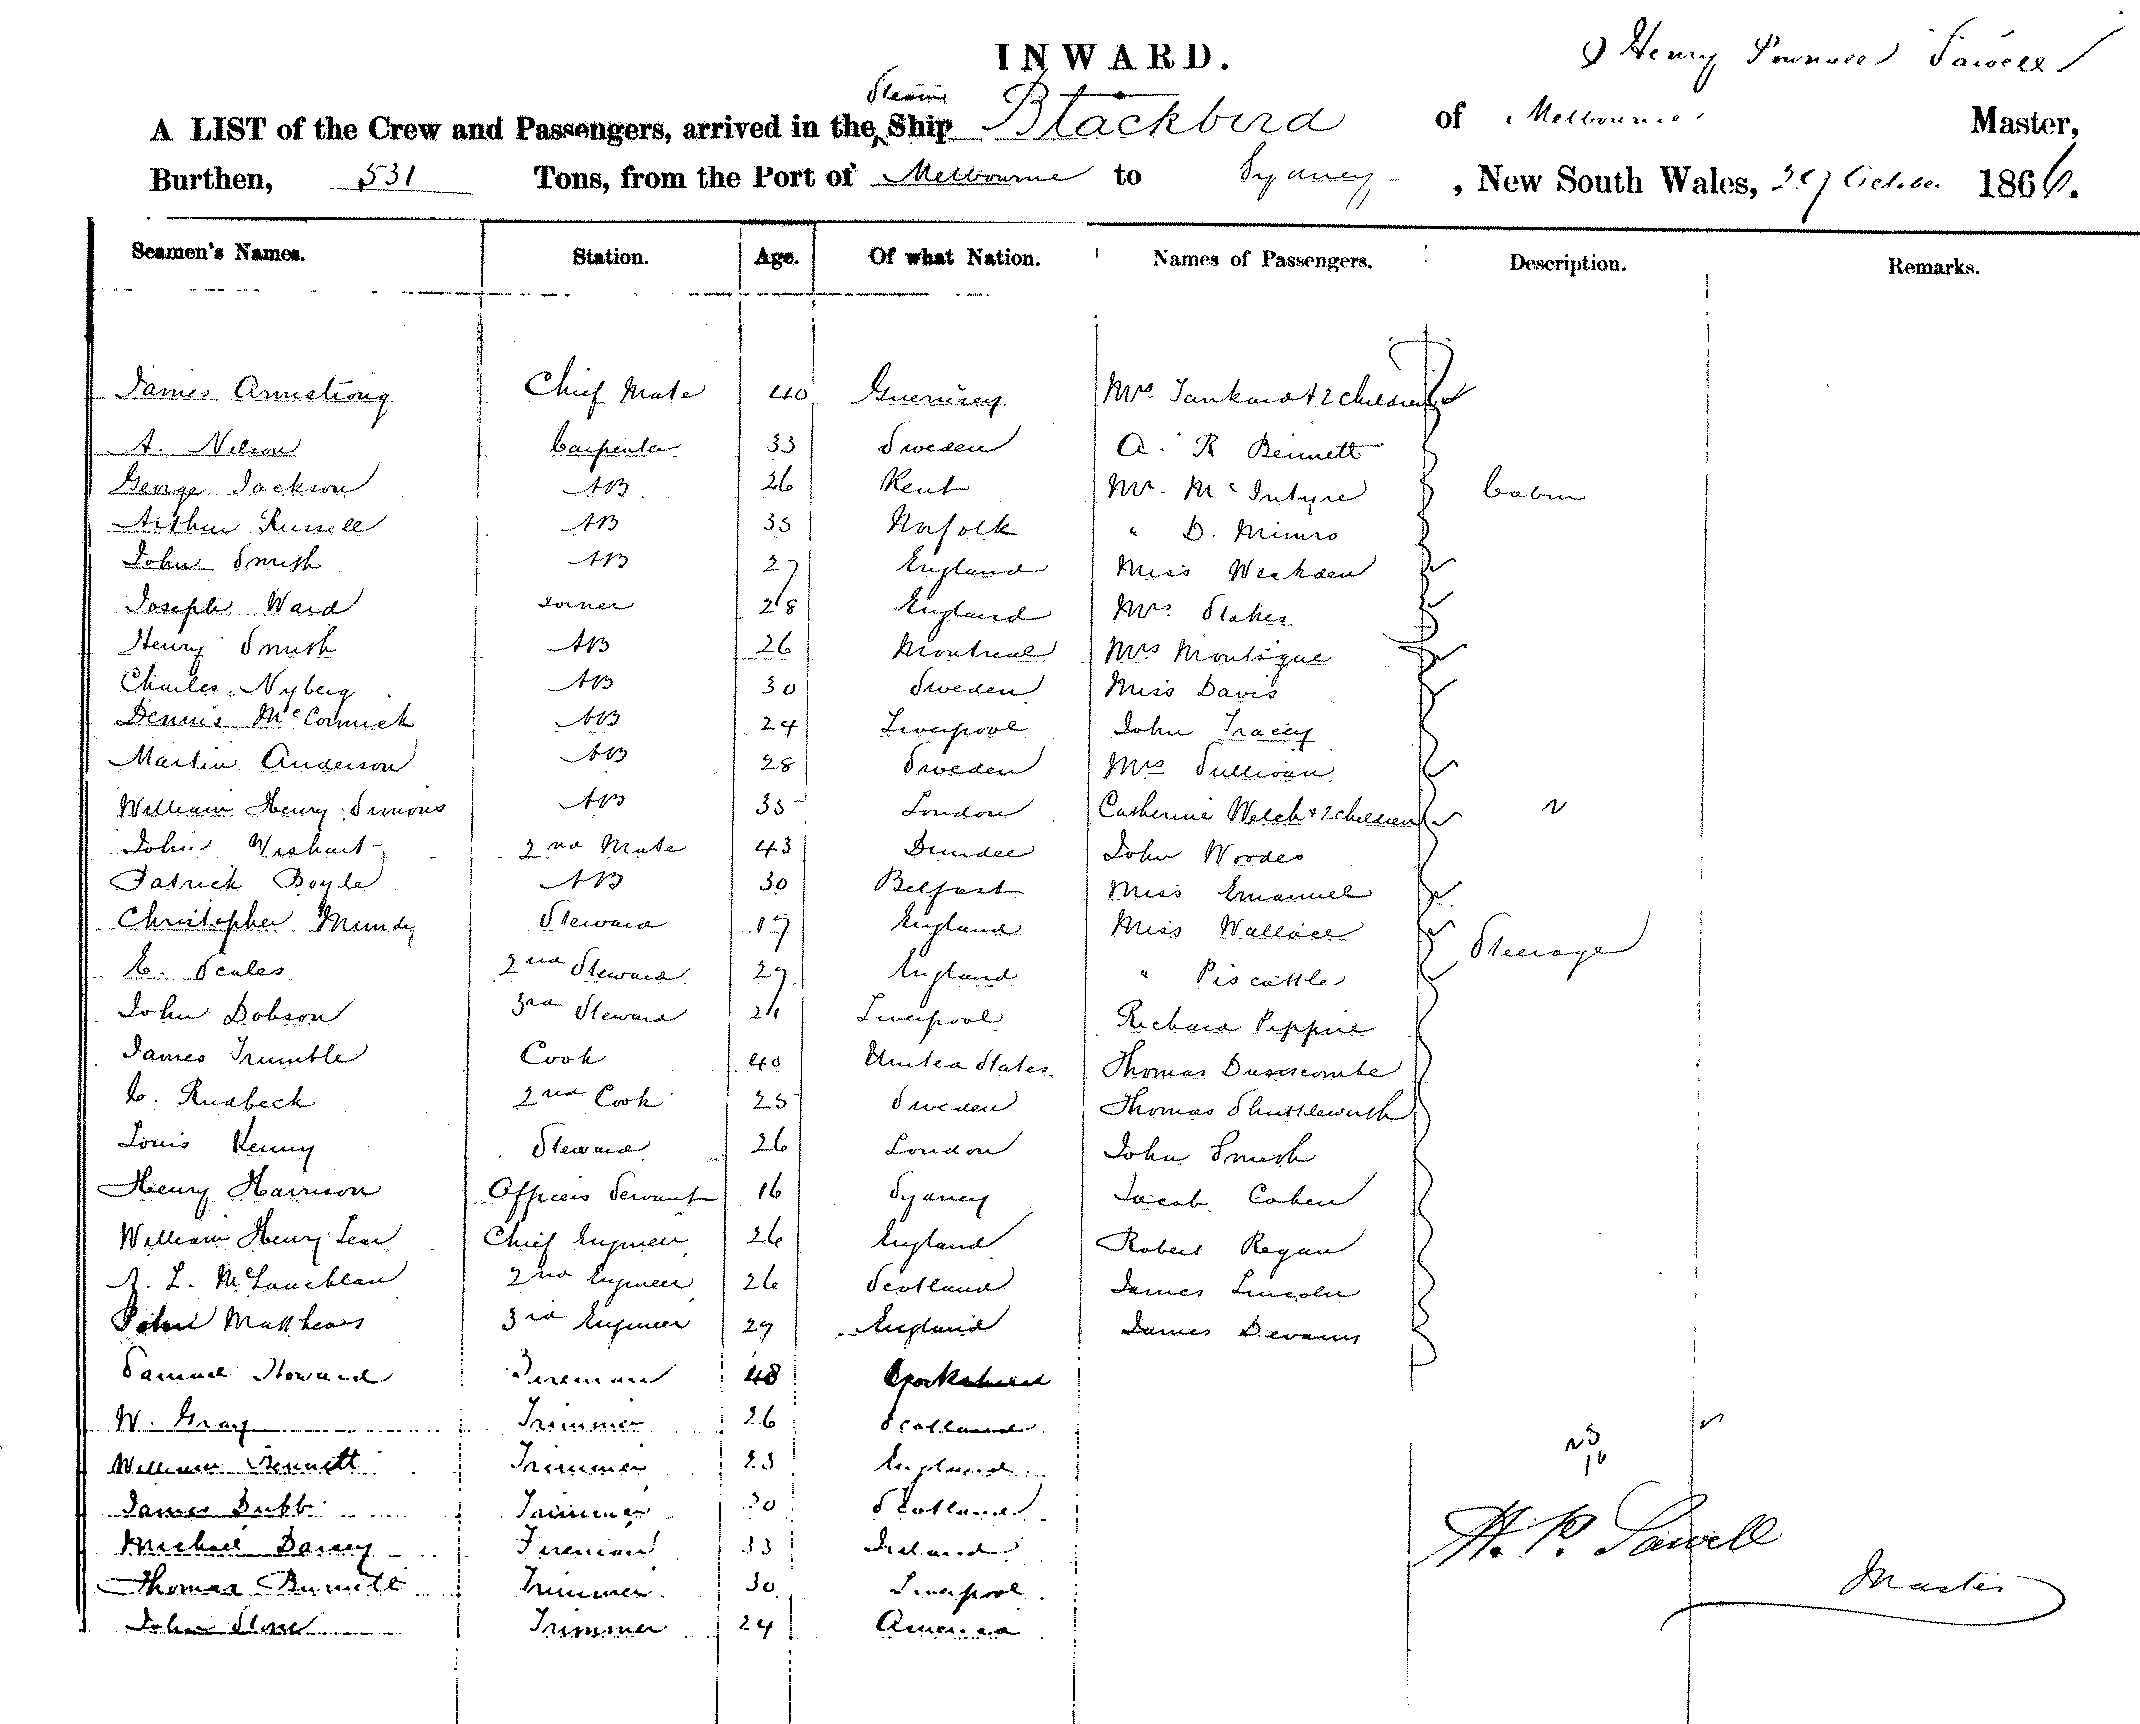 INWARD.
Henry Pownall Sawell
A LIST of the Crew and Passengers, arrived in the Steam Ship Blackbird of Melbourne Master,
Burthen, 531 Tons, from the Port of Melbourne to Sydney, New South Wales, October 1866.
Seamen's Names. Station. Age. Of what Nation. Names of Passengers. Description. Remarks.
James Armstrong Chief Mate 40 Guernsey Mrs Tankard & 2 Children
A. Nelson Carpenter 33 Sweden A. R Bennett
George Jackson AB 26 Kent Mr. McIntyre Cabin
Arthur Russell AB 35 Norfolk " D. Munro
John Smith AB 27 England Miss
Joseph Ward 28 England Mrs Stokes
Henry Smith AB 26 Montreal Mrs Montague
Charles Nyberg AB 30 Sweden Miss Davis
Dennis McCormick AB 24 Liverpool John Tracey
Martin Anderson AB 28 Sweden Mrs Sullivan
William Henry Simons AB 35 London Catherine Welch & 2 Children
John Wishart 2nd Mate 43 Dundee John Woods
Patrick Boyle AB 30 Belfast Miss Emanuel
Christopher Munday Steward 19 England Miss Wallace
E. Scales 2nd Steward 29 England " Steerage
John Dobson 3rd Steward 26 Liverpool Richard
James Trumble Cook 40 United States Thomas
C. Rudbeck 2nd Cook 25 Sweden Thomas Shuttleworth
Louis Kenny Steward 26 London John Smith
Henry Harrison Officers Servant 16 Sydney Jacob Cohen
William Henry Lear Chief Engineer 26 England Robert Regan
L. McLauchlan 2nd Engineer 26 Scotland James Lincoln
John Matthews 3rd Engineer 29 England James
Samuel Howard Fireman 48 Yorkshire
W. Gray Trimmer 26 Scotland
William Bennett Trimmer 23 England
James Dubb Trimmer 30 Scotland
Michael Darcey Fireman 33 Ireland
Thomas Burnett Trimmer 30 Liverpool
John Stone Trimmer 24 America
H. P. Sawell
Master